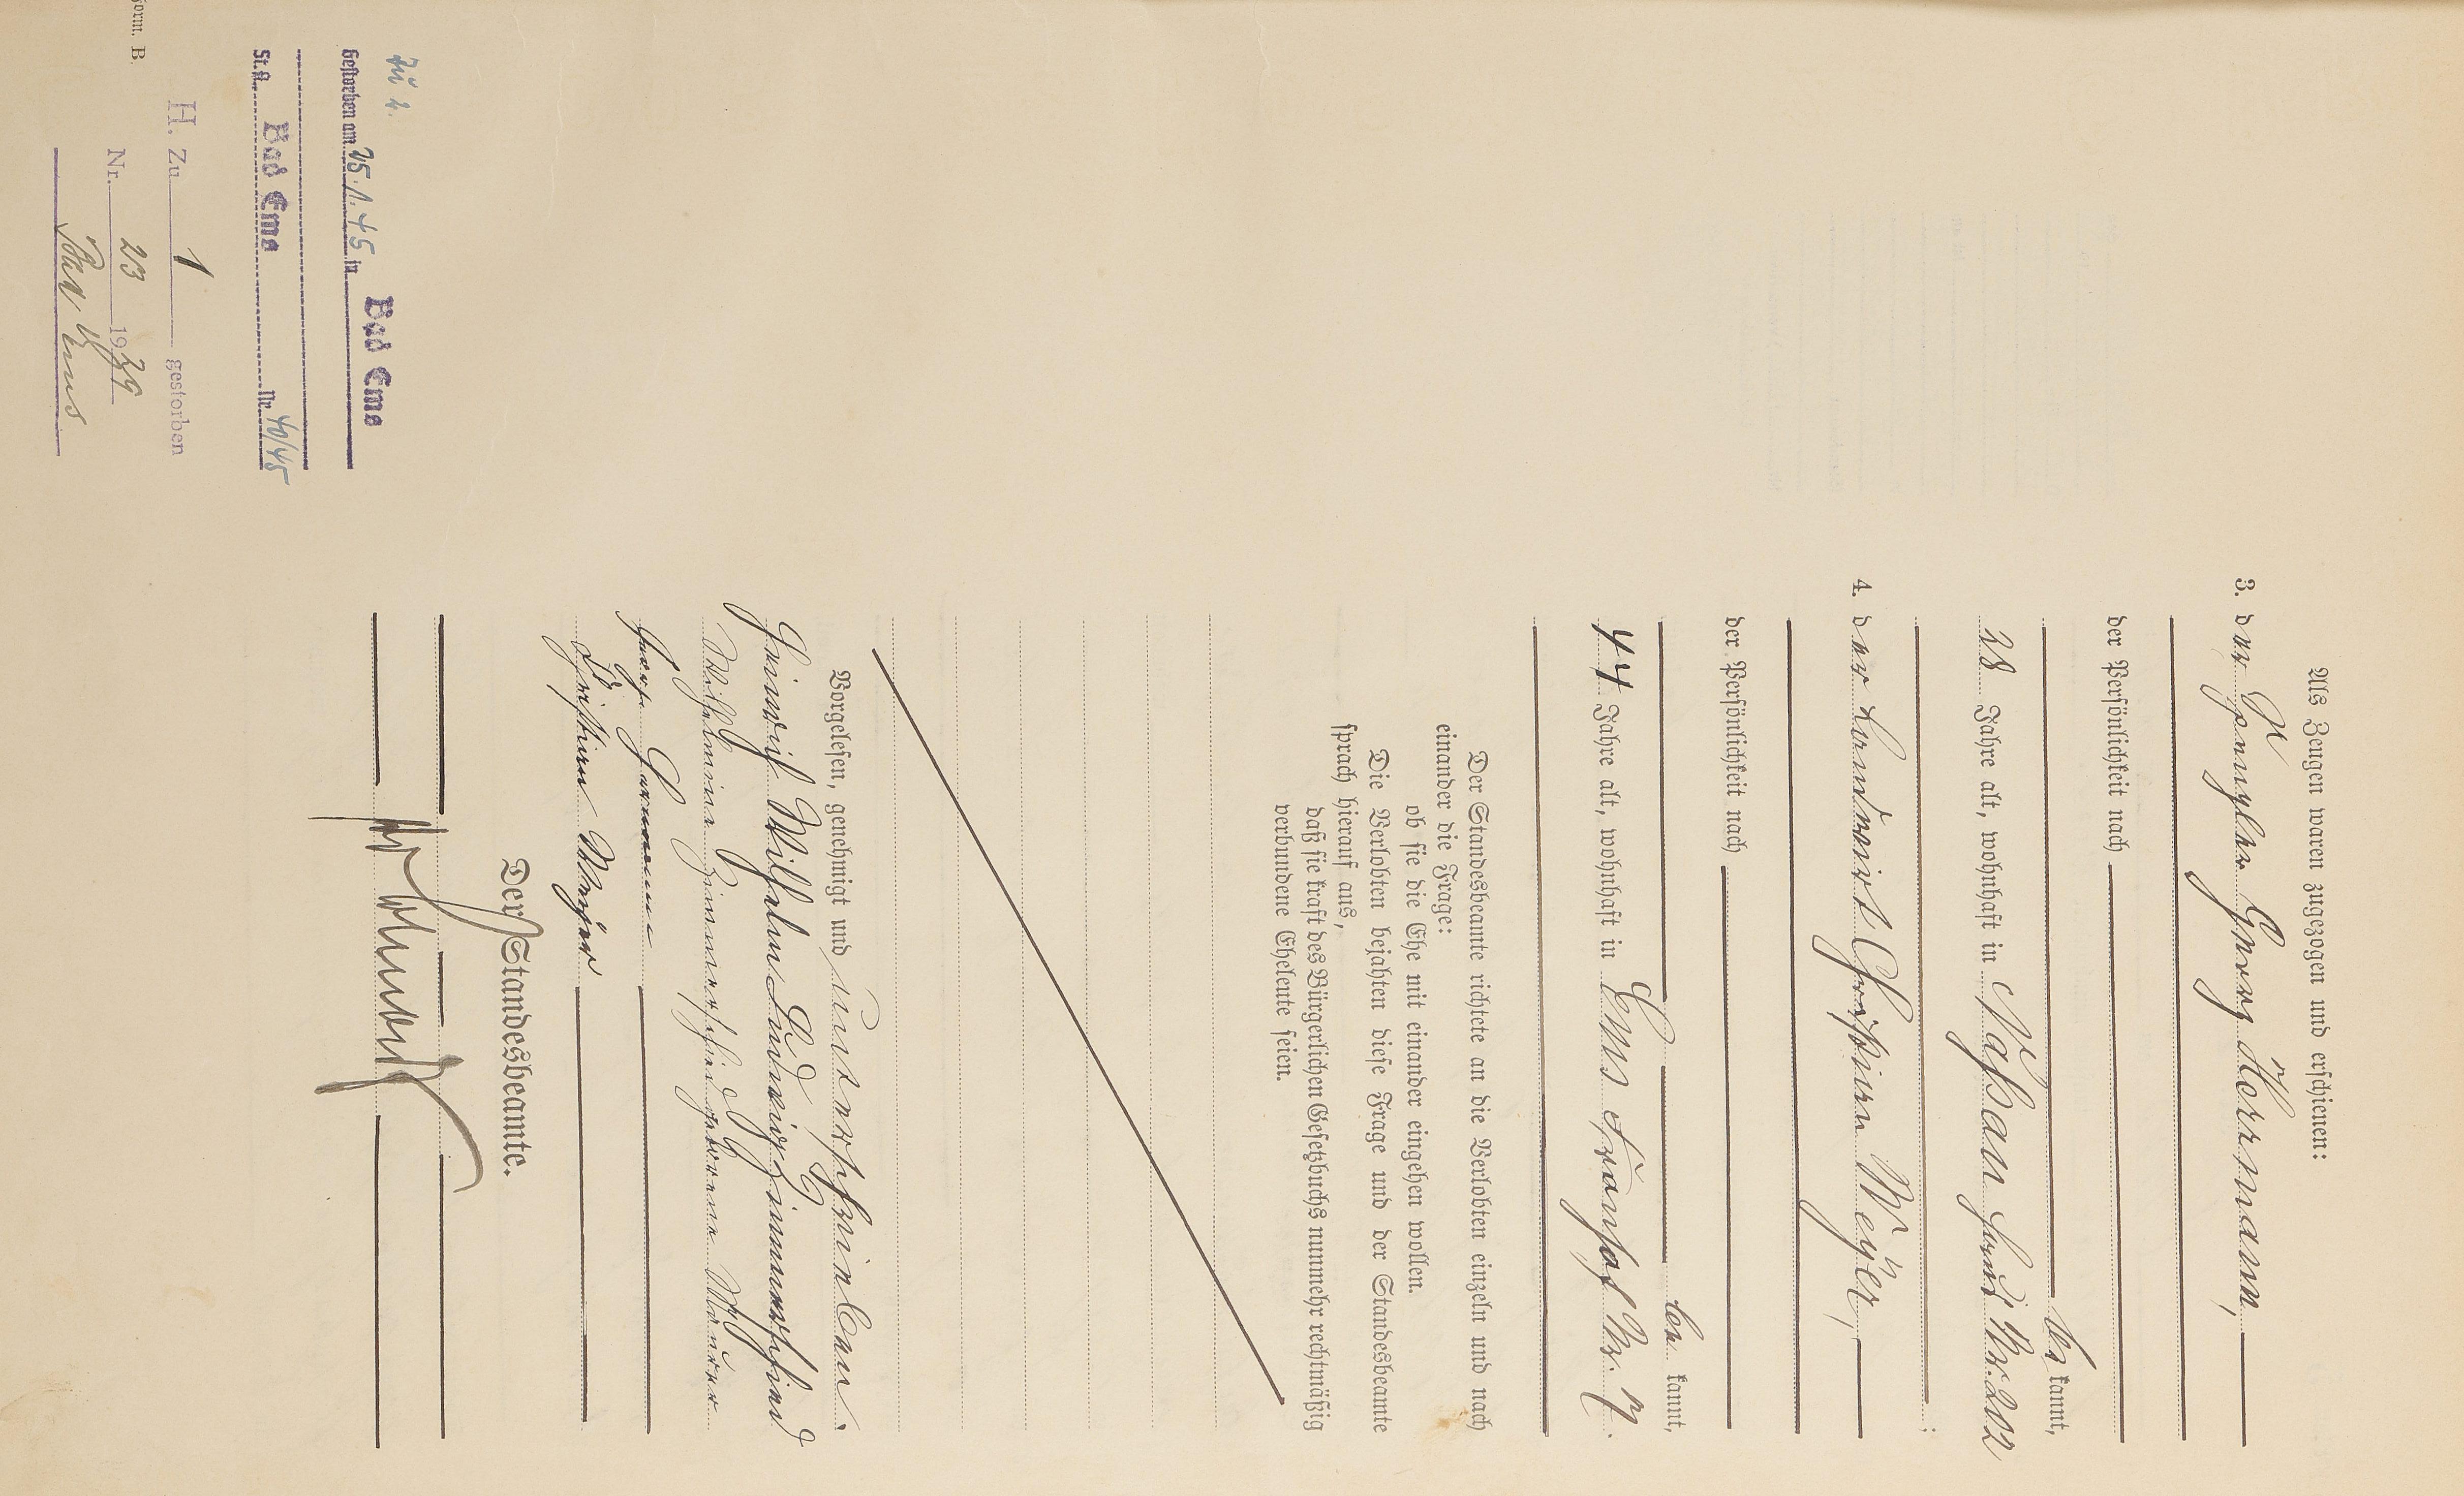 Als Zeugen waren zugezogen und erschienen:
3. der Spengler Georg Hermann,
der Persönlichkeit nach
be kannt,
28 Jahre alt, wohnhaft in Naßau
4. der Landwirt Christian Meyer,
der Persönlichkeit nach
be kannt,
44 Jahre alt, wohnhaft in Ems Nr. 7.
Der Standesbeamte richtete an die Verlobten einzeln und nach
einander die Frage:
ob sie die Ehe mit einander eingehen wollen.
Die Verlobten bejahten diese Frage und der Standesbeamte
sprach hierauf aus,
daß sie kraft des Bürgerlichen Gesetzbuchs nunmehr rechtmäßig
verbundene Eheleute seien.
Vorgelesen, genehmigt und unterschrieben.
Heinrich Wilhelm Ludwig Zimmerschied
Wilhelmine Zimmerschied geborene
Georg Hermann
Christian Meyer
Der Standesbeamte.
Gestorben am 25.1.45 in Bad Ems
St.A. Bad Ems Nr. 40/45
H. Zu 1 gestorben
Nr. 23 1939
Bad Ems
Form. B.